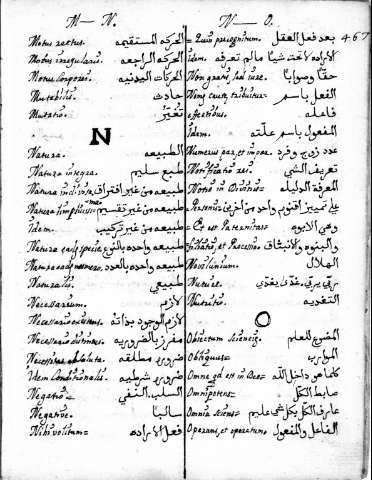 M — N.
Motus rectus. الحركه المستقيمه
Motus irregularis. الحركه الراجعه
Motus Corporeus. الحركات البدنيه
Mutabilis. حادث
Mutatio. تغيّر
N
Natura. الطبيعه
Natura integra. طبع سليم
Natura indivisa. طبيعه من غير افتراق
Natura simplicissima. طبيعه من غير تقسيم
Idem. طبيعه من غير تركيب
Natura eadē specie. طبيعه واحده بالنوع
Natura eadē numero. طبيعه واحده بالعدد
Naturalis. طبيعي
Necessarium. لازم
Necessario existens. لازم الوجود بذاته
Necessario distinctus. مفرز بالضروريه
Necessitas absoluta. ضروريه مطلقه
Idem Conditionalis. ضروريه شرطيه
Negatio= السلب. النفي
Negative. سالبا
Nihil volitum= فعل الاراده
N — O. 467
= Quin præcognitum. بعد فعل العقل
Idem. الاراده لا تحب شيا ما لم تعرفه
Non gratis, sed jure. حقّا وصوابا
Nomē causæ tribuitur= الفعل باسم
effectibus. فاعله
Idem. المفعول باسم علّته
Numerus par, et impar. عدد زوج وفرد
Notificatio rei. تعريف الشي
Notio in Divinis= المعرفة الدليله
=Personis. على تمييز اقنوم واحد من اخرين
= Et est Paternitas= وهي الابوه
Filiatio, et Processio. والبنوه والانبثاق
Novilunium. الهلال
Nutrire. ربي يربي. غذّى يغذّي
Nutritio. التغديه
O
Obiectum Scientiæ. الموضوع للعلم
Obliquus= الموارب
Omne qd est in Deo= كلما هو داخل الله
Omnipotens. ضابط الكل
Omnia sciens= عارف الكل بكل شي عليم
Operans, et operatum= الفاعل والمفعول